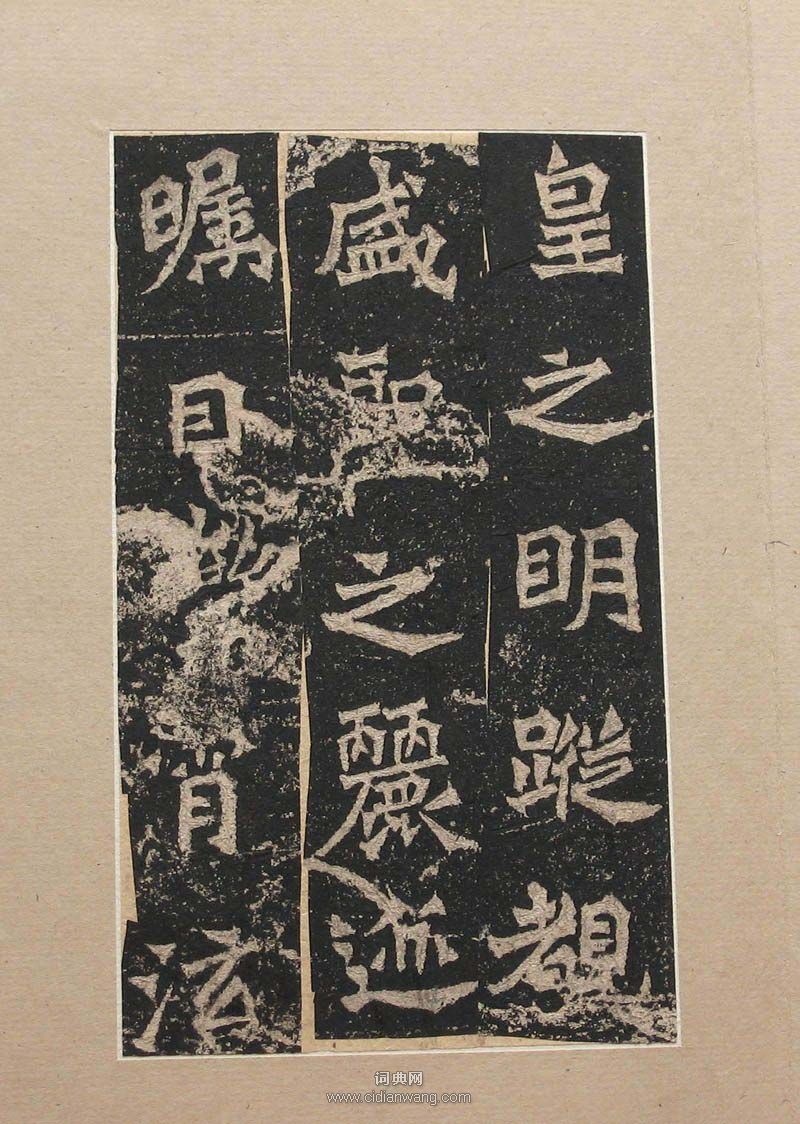 皇之明蹤覩
盛聖之麗迹
矚目霄泫
词典网
www.cidianwang.com